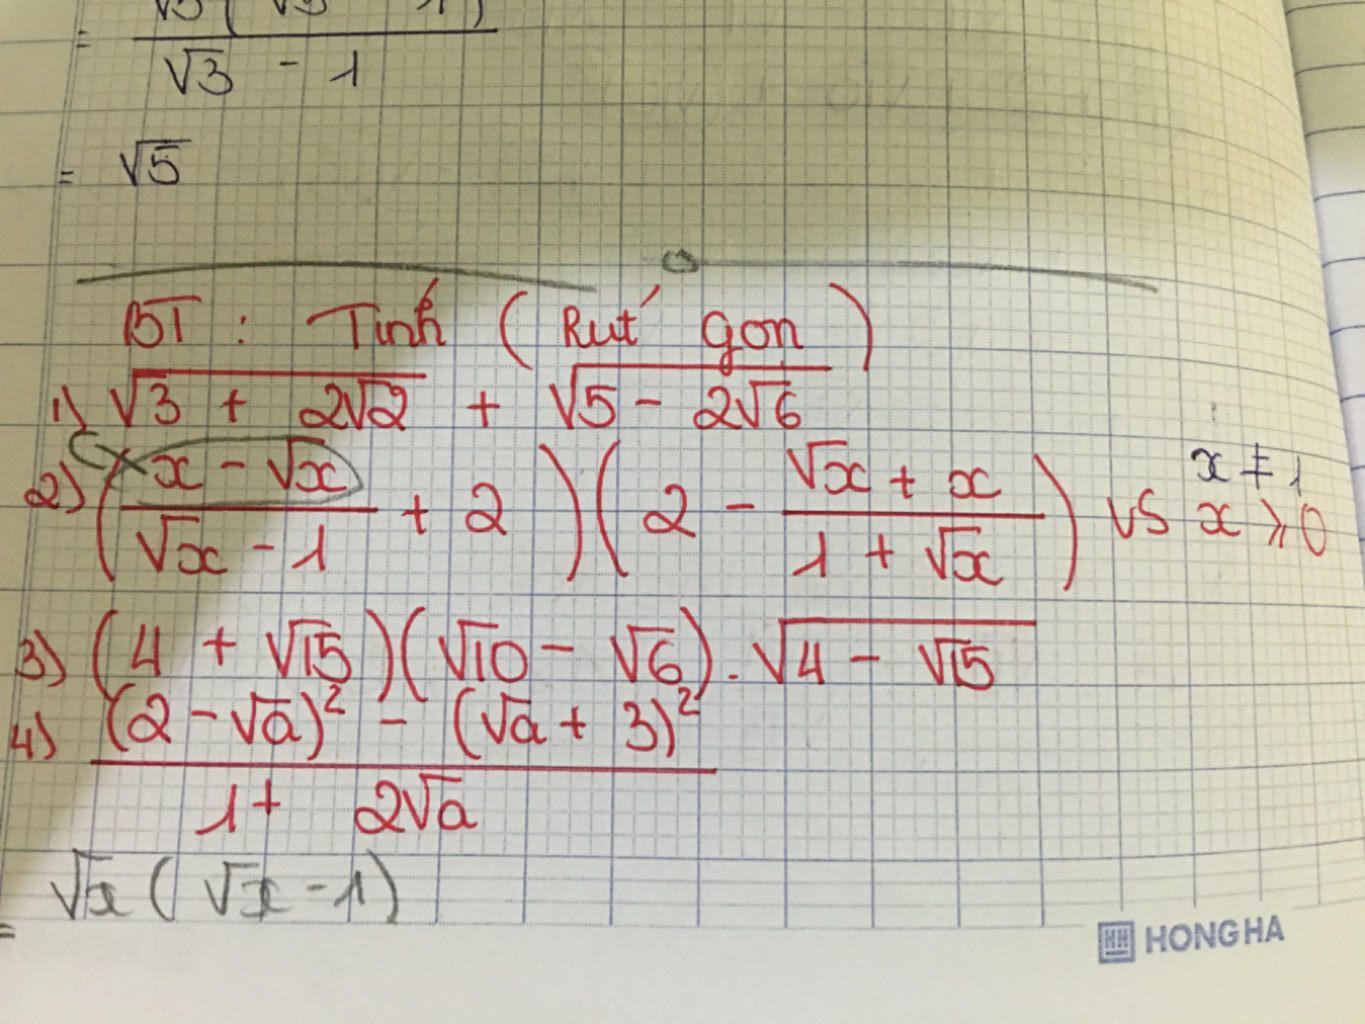 = √3 - 1
= √5
BT : Tính ( Rút gọn )
1) √(3 + 2√2) + √(5 - 2√6)
2) ((x - √x)/(√x - 1) + 2)(2 - (√x + x)/(1 + √x)) vs x ≥ 0 x ≠ 1
3) (4 + √15)(√10 - √6) . √(4 - √15)
4) ((2 - √a)² - (√a + 3)²)/(1 + 2√a)
= √x ( √x - 1)
HH HONG HA